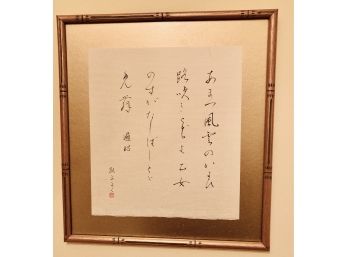 あまつ風雲のかよひ
路吹きとぢよ乙女
のすがたしばしとど
免 遍昭